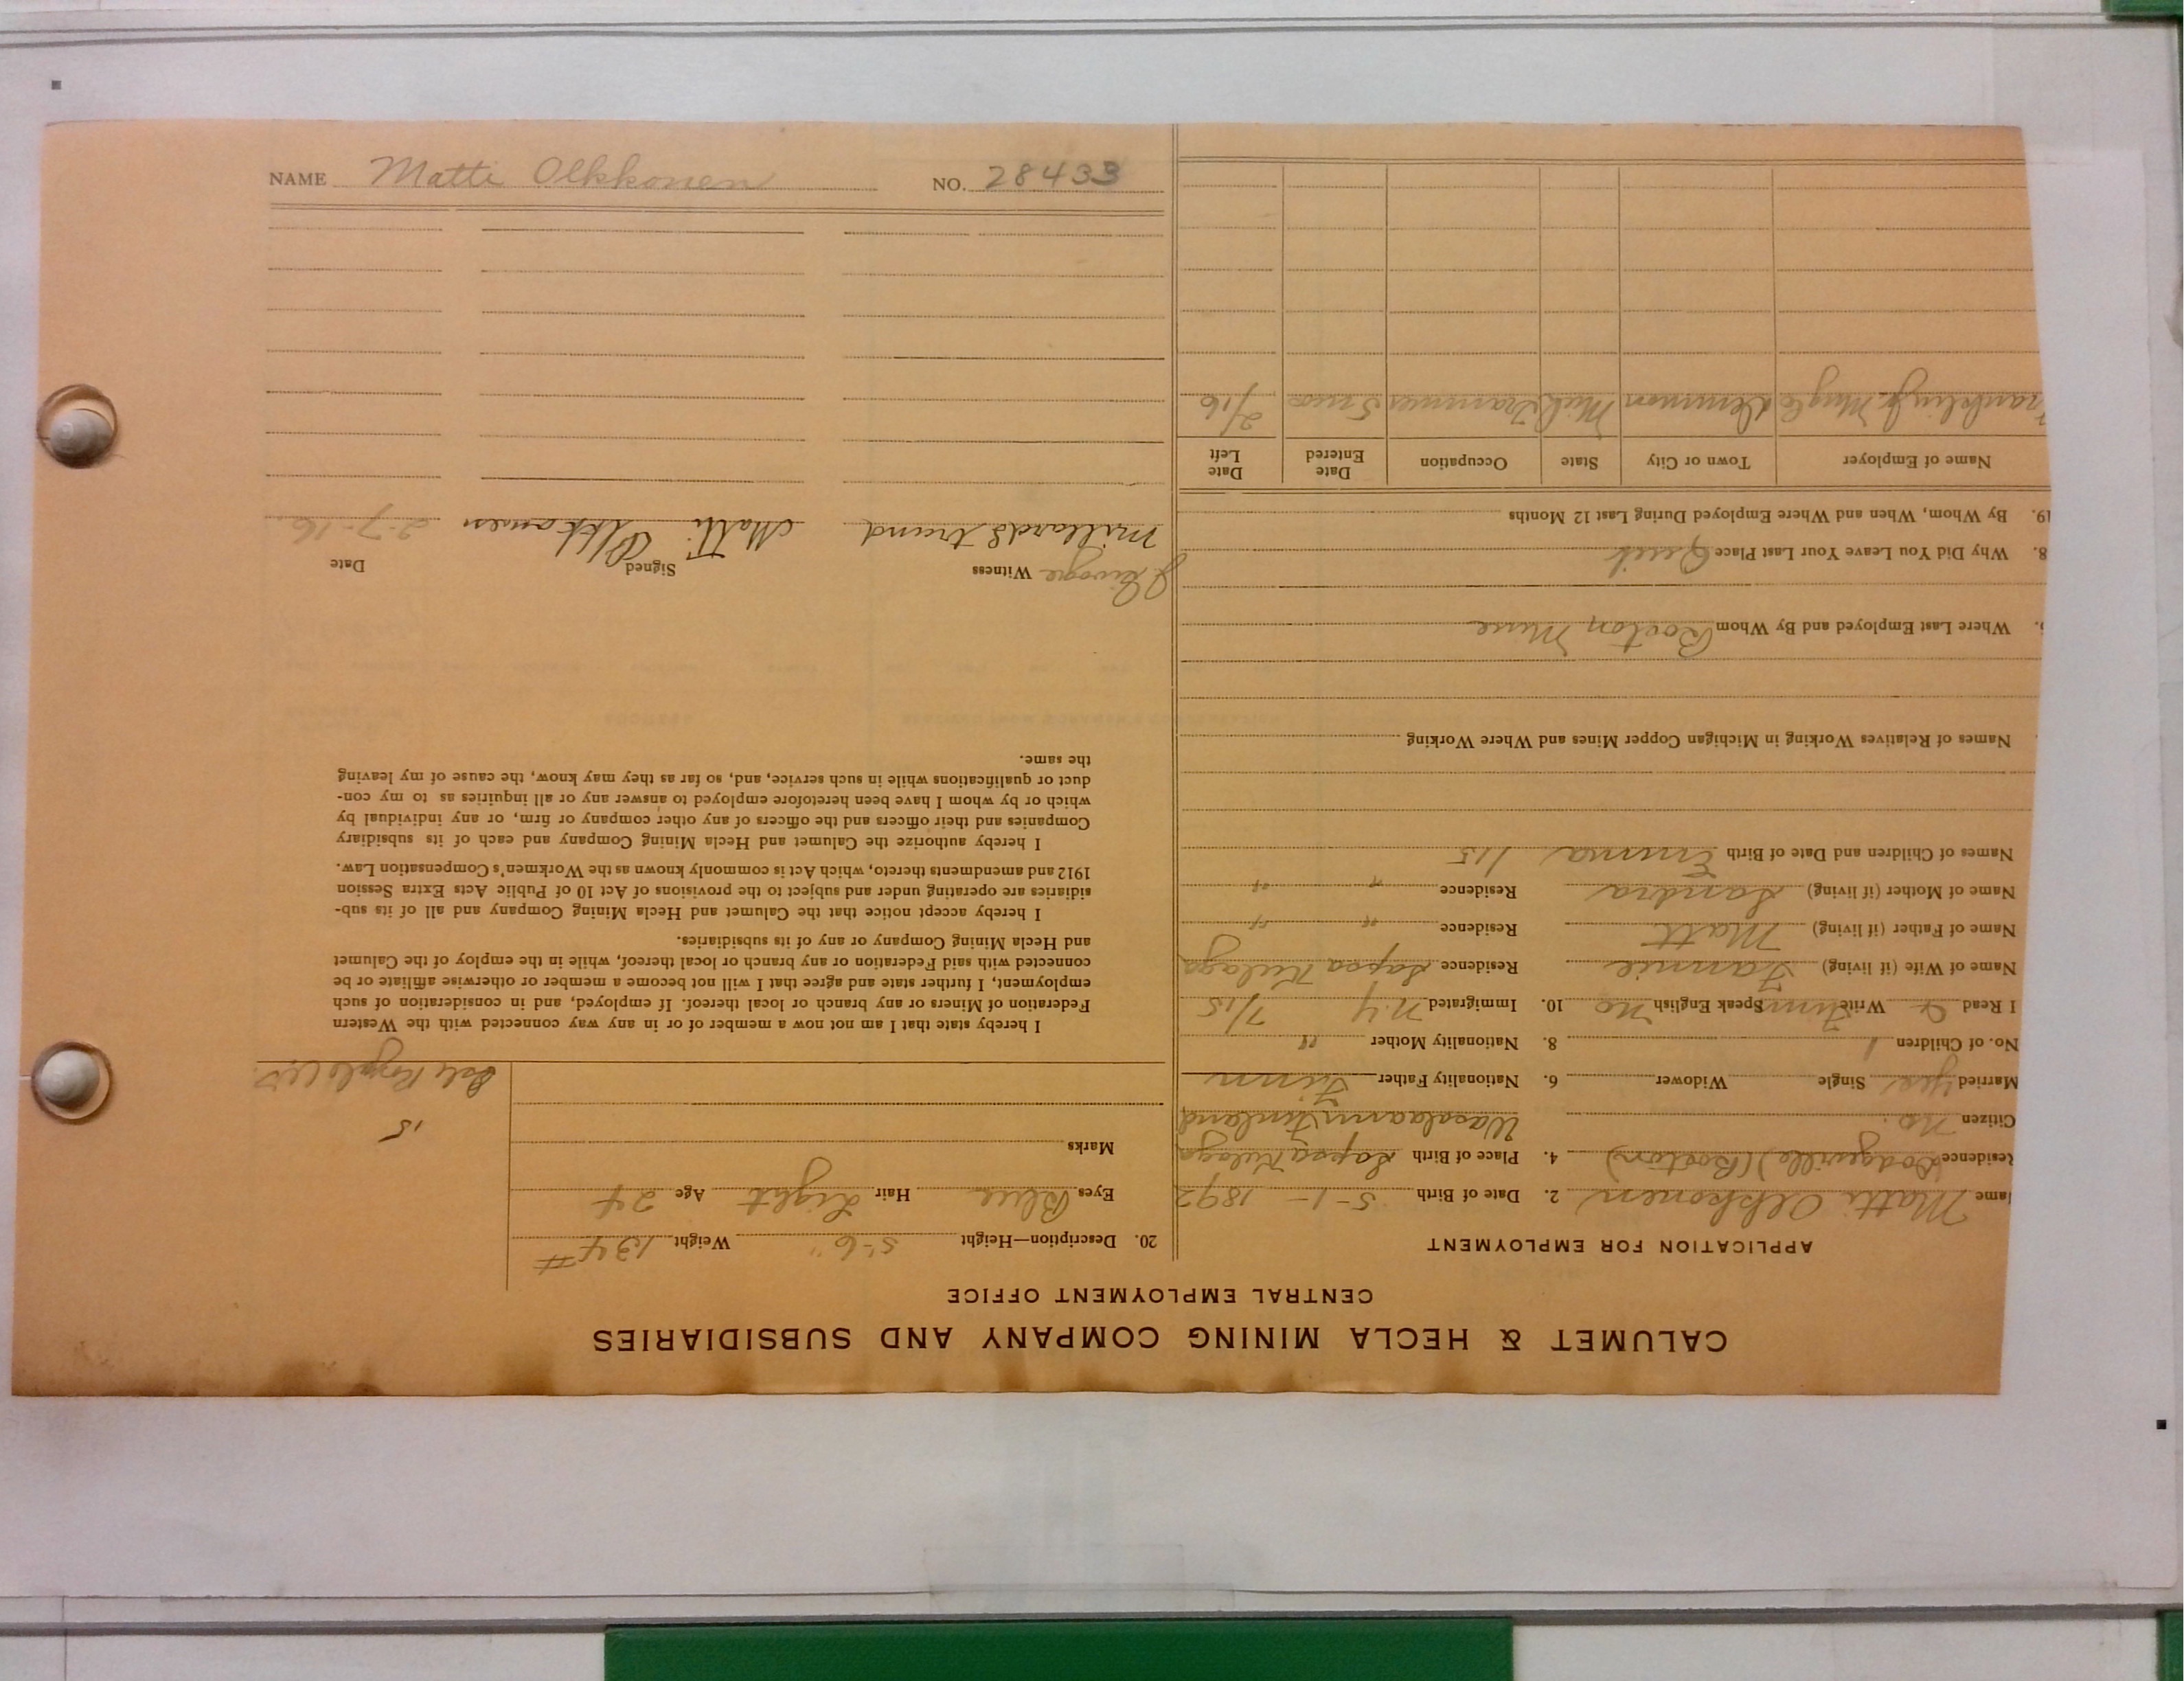 NAME Matti Olkkonen NO. 28433
CALUMET & HECLA MINING COMPANY AND SUBSIDIARIES
CENTRAL EMPLOYMENT OFFICE
APPLICATION FOR EMPLOYMENT
ame Matti Olkkonen 2. Date of Birth 5-1-1892
Residence Dodgeville (Boston) 4. Place of Birth Lapoa Kulaga
Citizen No. Wasalaani Finland
Married Yes Single Widower 6. Nationality Father Finn
No. of Children 1 8. Nationality Mother "
I Read & Write Finn Speak English No 10. Immigrated N.Y 7/15
Name of Wife (if living) Fannie Residence Lapoa Kulaga
Name of Father (if living) Matt Residence " "
Name of Mother (if living) Sandra Residence " "
Names of Children and Date of Birth Emma 1/15
Names of Relatives Working in Michigan Copper Mines and Where Working
Where Last Employed and By Whom Boston Mine
8. Why Did You Leave Your Last Place Quit
19. By Whom, When and Where Employed During Last 12 Months
Name of Employer Town or City State Occupation Date Entered Date Left
Franklin Jr. Mng Co Demmon Mich Trammer 5 mos 2/16
20. Description—Height 5'-6" Weight 134#
Eyes Blue Hair Light Age 24
Marks
15
Isle Royale
I hereby state that I am not now a member of or in any way connected with the Western
Federation of Miners or any branch or local thereof. If employed, and in consideration of such
employment, I further state and agree that I will not become a member or otherwise affiliate or be
connected with said Federation or any branch or local thereof, while in the employ of the Calumet
and Hecla Mining Company or any of its subsidiaries.
I hereby accept notice that the Calumet and Hecla Mining Company and all of its sub-
sidiaries are operating under and subject to the provisions of Act 10 of Public Acts Extra Session
1912 and amendments thereto, which Act is commonly known as the Workmen's Compensation Law.
I hereby authorize the Calumet and Hecla Mining Company and each of its subsidiary
Companies and their officers and the officers of any other company or firm, or any individual by
which or by whom I have been heretofore employed to answer any or all inquiries as to my con-
duct or qualifications while in such service, and, so far as they may know, the cause of my leaving
the same.
Witness Signed Date
Millard Strand Matti Olkkonen 2-7-16